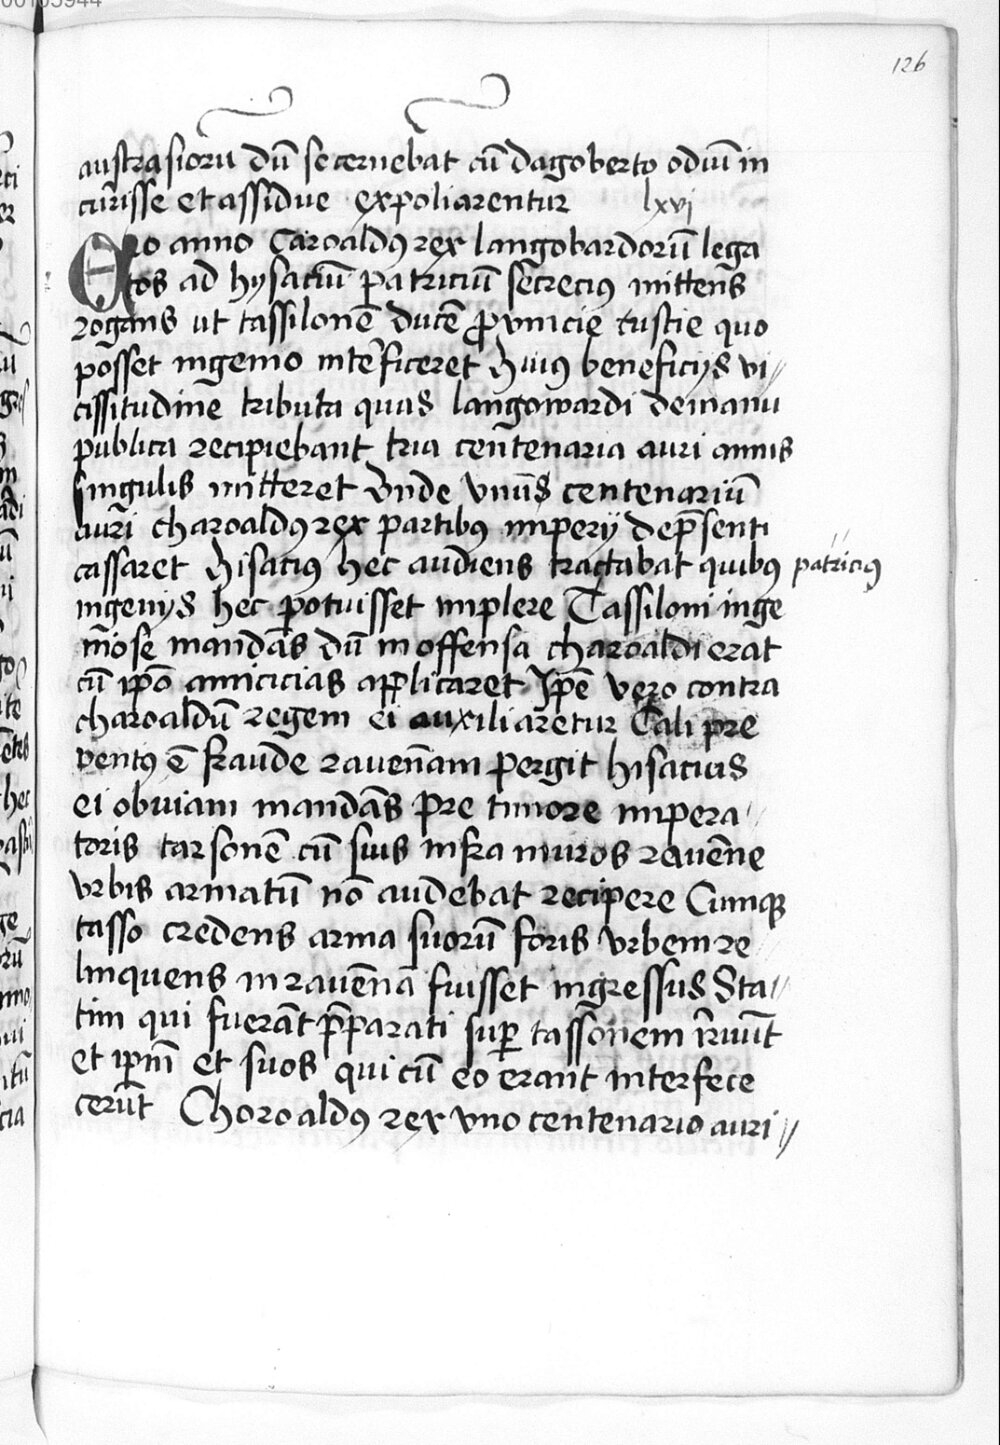 126
austrasioru dū se cernebāt cū dagoberto odiū in
curisse et assidue expoliarentur lxvi
Eo anno Caroaldꝯ rex langobardorū lega
tos ad hysaciū patriciū secrecius mittens
rogans ut tassilonē ducē ꝓvincie tuscie quo
posset ingenio interficeret huius beneficiis vi
cissitudine tributa quas langowardi de manu
publica recipiebant tria centenaria auri annis
singulis mitteret vnde vnus centenariū
auri charoaldꝯ rex partibꝯ imperii de p̄senti
cassaret hisacius hec audiens tractabat quibꝯ patriciꝯ
ingeniis hec potuisset implere Tassiloni inge
niose mandās dū in offensa charoaldi erat
cū ip̄o amicicias applicaret Ip̄e vero contra
charoaldū regem ei auxiliaretur Tali pre
ventꝯ ē fraude ravennam pergit hisacius
ei obviam mandās pre timore impera
toris tarsonē cū suis infra muros ravēne
vrbis armatū nō audebat recipere Cumqꝫ
tasso credens arma suorū foris vrbem re
linquens in ravēnā fuisset ingressus Sta
tim qui fuerāt p̄parati suꝑ tassonem irruūt
et ip̄m et suos qui cū eo erant interfece
cerūt Choroaldꝯ rex vno centenario auri